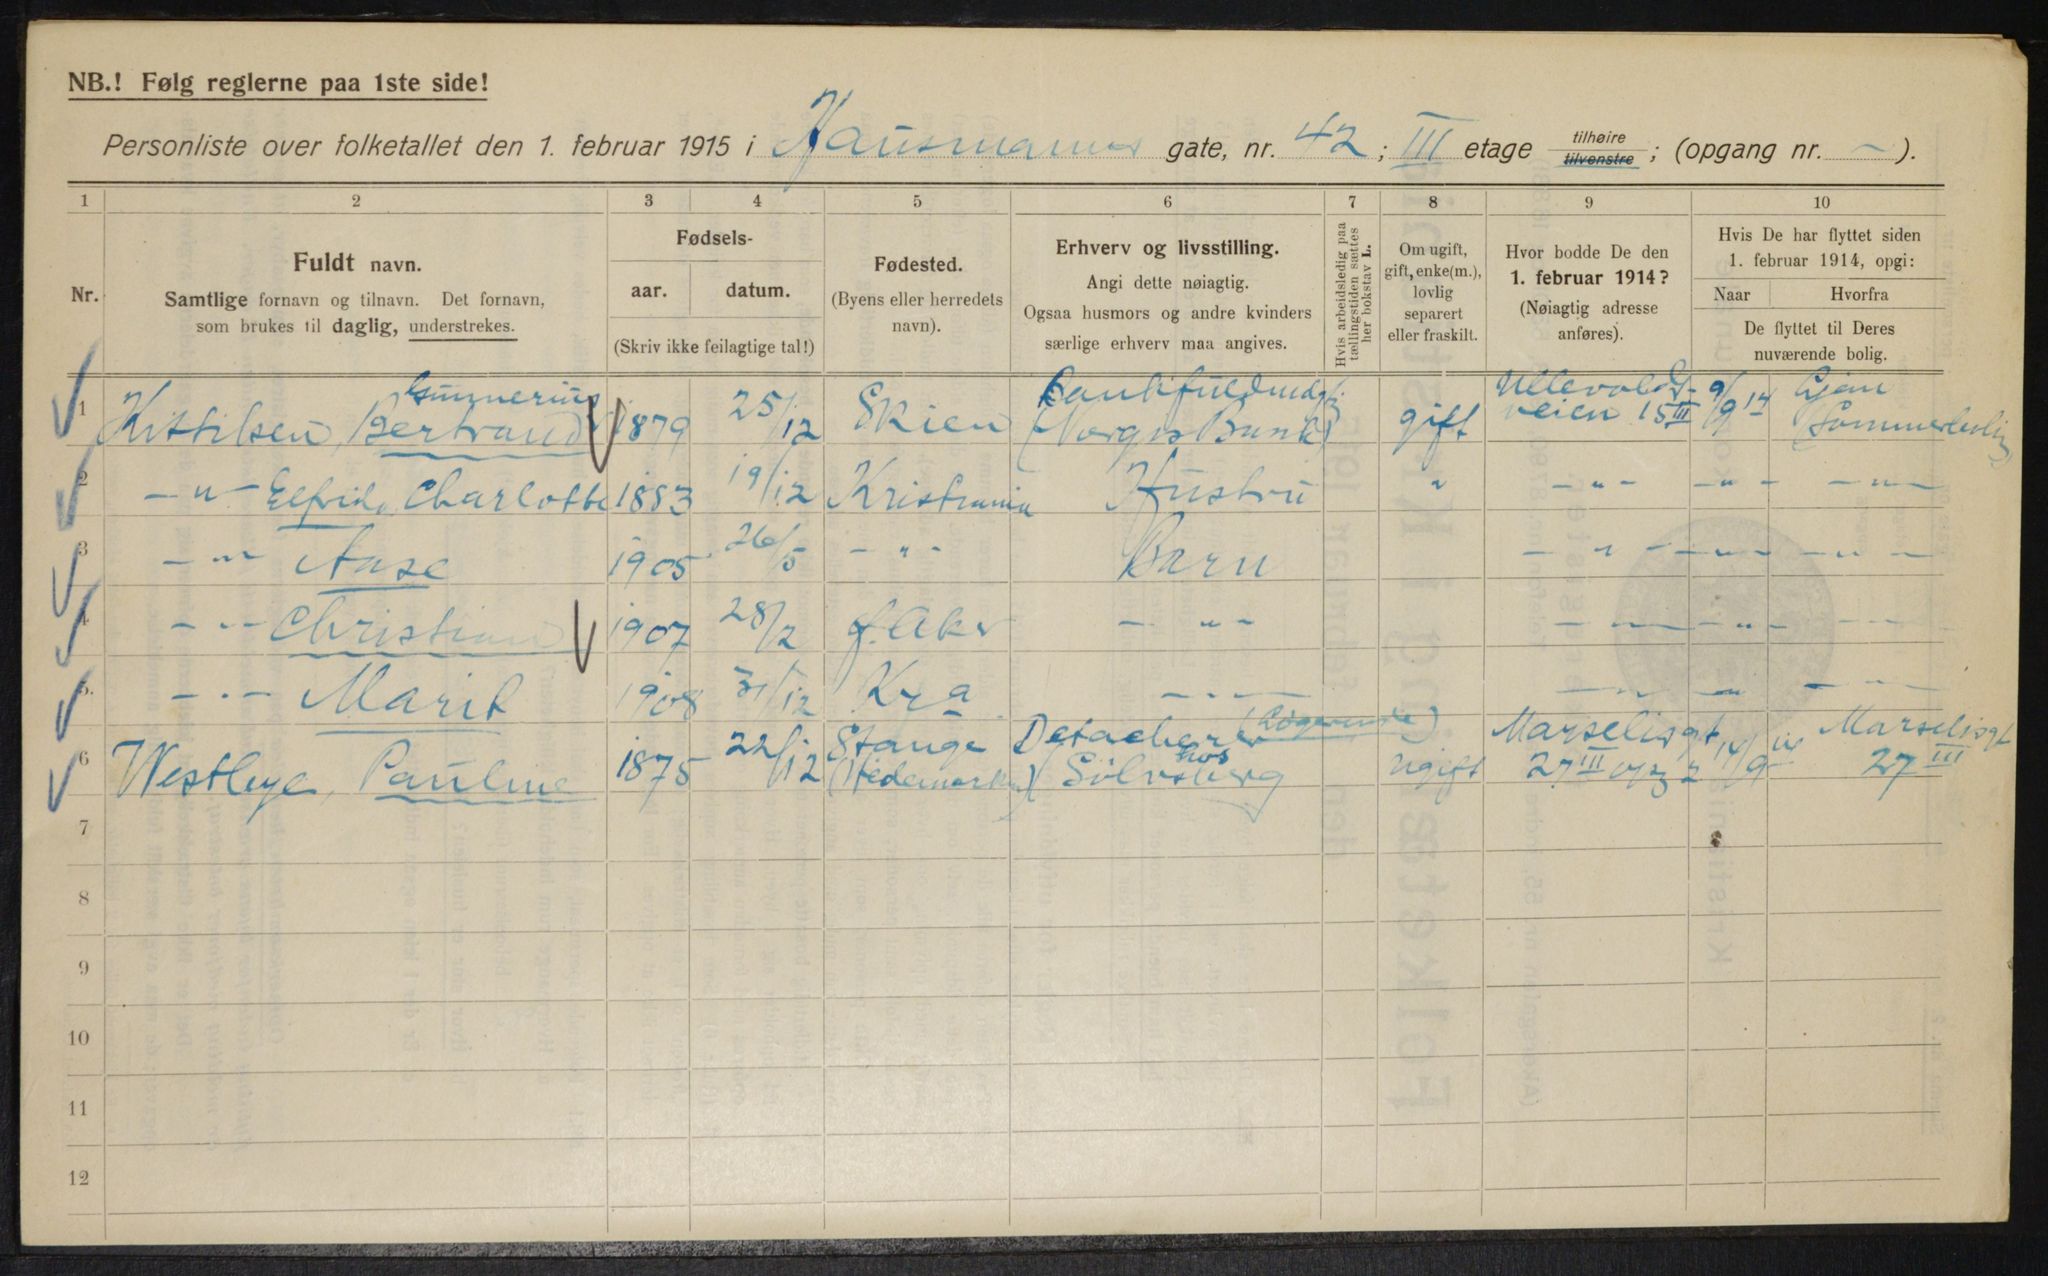 NB.! Følg reglerne paa 1ste side!
Personliste over folketallet den 1. februar 1915 i Hausmanns gate, nr. 42; III etage tilhøire tilvenstre; (opgang nr. - ).
1 2 3 4 5 6 7 8 9 10
Nr.
Fuldt navn.
Samtlige fornavn og tilnavn. Det fornavn,
som brukes til daglig, understrekes.
Fødsels-
aar. datum.
(Skriv ikke feilagtige tal!)
Fødested.
(Byens eller herredets
navn).
Erhverv og livsstilling.
Angi dette nøiagtig.
Ogsaa husmors og andre kvinders
særlige erhverv maa angives.
Hvis arbeidsledig paa
tællingstiden sættes
her bokstav L.
Om ugift,
gift, enke(m.),
lovlig
separert
eller fraskilt.
Hvor bodde De den
1. februar 1914?
(Nøiagtig adresse
anføres).
Hvis De har flyttet siden
1. februar 1914, opgi:
Naar Hvorfra
De flyttet til Deres
nuværende bolig.
1 Kittilsen, Bertrand Gunnerius 1879 25/12 Skien (Norges Bank) gift Ullevolds-veien 15 III 9/9 14
2 -"- Elfrida Charlotte 1883 19/12 Kristiania Hustru " -"- -"- -"-
3 -"- Aase 1905 26/5 -"- Barn -"- -"- -"-
4 -"- Christian 1907 28/2 V. Aker -"- -"- -"- -"-
5. -"- Marit 1908 31/12 Kra -"- -"- -"- -"-
6 Westlye, Pauline 1875 22/12 Stange (Hedemarken) (Logerende) hos Sølvsberg ugift Marselisgt 27 III opg 2 14/9 14 Marselisgt 27 III
7
8
9
10
11
12